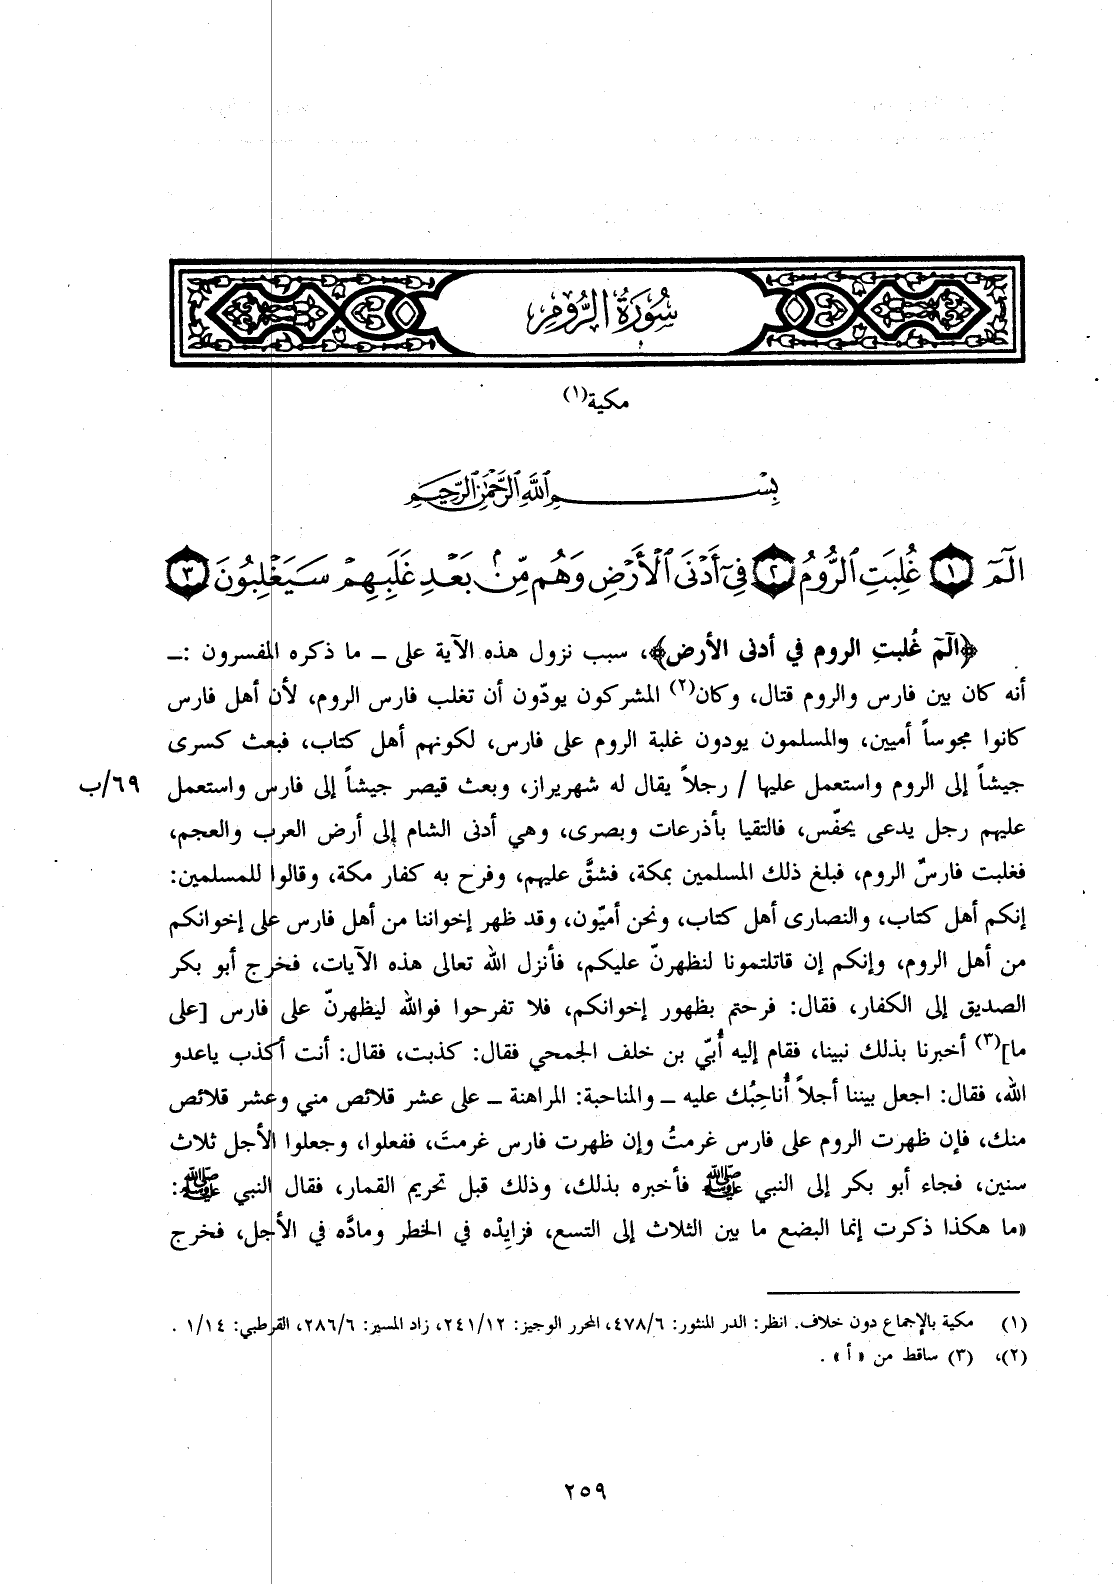 سُورَةُ الرُّومِ
مكية(١)
بِسْمِ اللَّهِ الرَّحْمَٰنِ الرَّحِيمِ
الٓمٓ ١ غُلِبَتِ ٱلرُّومُ ٢ فِىٓ أَدْنَى ٱلْأَرْضِ وَهُم مِّنۢ بَعْدِ غَلَبِهِمْ سَيَغْلِبُونَ ٣
﴿الٓمٓ غُلبتِ الروم في أدنى الأرض﴾، سبب نزول هذه الآية على ــ ما ذكره المفسرون :ــ
أنه كان بين فارس والروم قتال، وكان(٢) المشركون يودّون أن تغلب فارس الروم، لأن أهل فارس
كانوا مجوساً أميين، والمسلمون يودون غلبة الروم على فارس، لكونهم أهل كتاب، فبعث كسرى
جيشاً إلى الروم واستعمل عليها / رجلاً يقال له شهريراز، وبعث قيصر جيشاً إلى فارس واستعمل ٦٩/ب
عليهم رجل يدعى يحفّس، فالتقيا بأذرعات وبصرى، وهي أدنى الشام إلى أرض العرب والعجم،
فغلبت فارسٌ الروم، فبلغ ذلك المسلمين بمكة، فشقَّ عليهم، وفرح به كفار مكة، وقالوا للمسلمين:
إنكم أهل كتاب، والنصارى أهل كتاب، ونحن أميّون، وقد ظهر إخواننا من أهل فارس على إخوانكم
من أهل الروم، وإنكم إن قاتلتمونا لنظهرنّ عليكم، فأنزل الله تعالى هذه الآيات، فخرج أبو بكر
الصديق إلى الكفار، فقال: فرحتم بظهور إخوانكم، فلا تفرحوا فوالله ليظهرنّ على فارس [على
ما](٣) أخبرنا بذلك نبينا، فقام إليه أُبيّ بن خلف الجمحي فقال: كذبت، فقال: أنت أكذب ياعدو
الله، فقال: اجعل بيننا أجلاً أُناحِبُك عليه ــ والمناحبة: المراهنة ــ على عشر قلائص مني وعشر قلائص
منك، فإن ظهرت الروم على فارس غرمتُ وإن ظهرت فارس غرمتَ، ففعلوا، وجعلوا الأجل ثلاث
سنين، فجاء أبو بكر إلى النبي ﷺ فأخبره بذلك، وذلك قبل تحريم القمار، فقال النبي ﷺ:
«ما هكذا ذكرت إنما البضع ما بين الثلاث إلى التسع، فزايِدْه في الخطر ومادَّه في الأجل، فخرج
(١) مكية بالإجماع دون خلاف. انظر: الدر المنثور: ٤٧٨/٦، المحرر الوجيز: ٢٤١/١٢، زاد المسير: ٢٨٦/٦، القرطبي: ١/١٤ .
(٢)، (٣) ساقط من «أ» .
٢٥٩